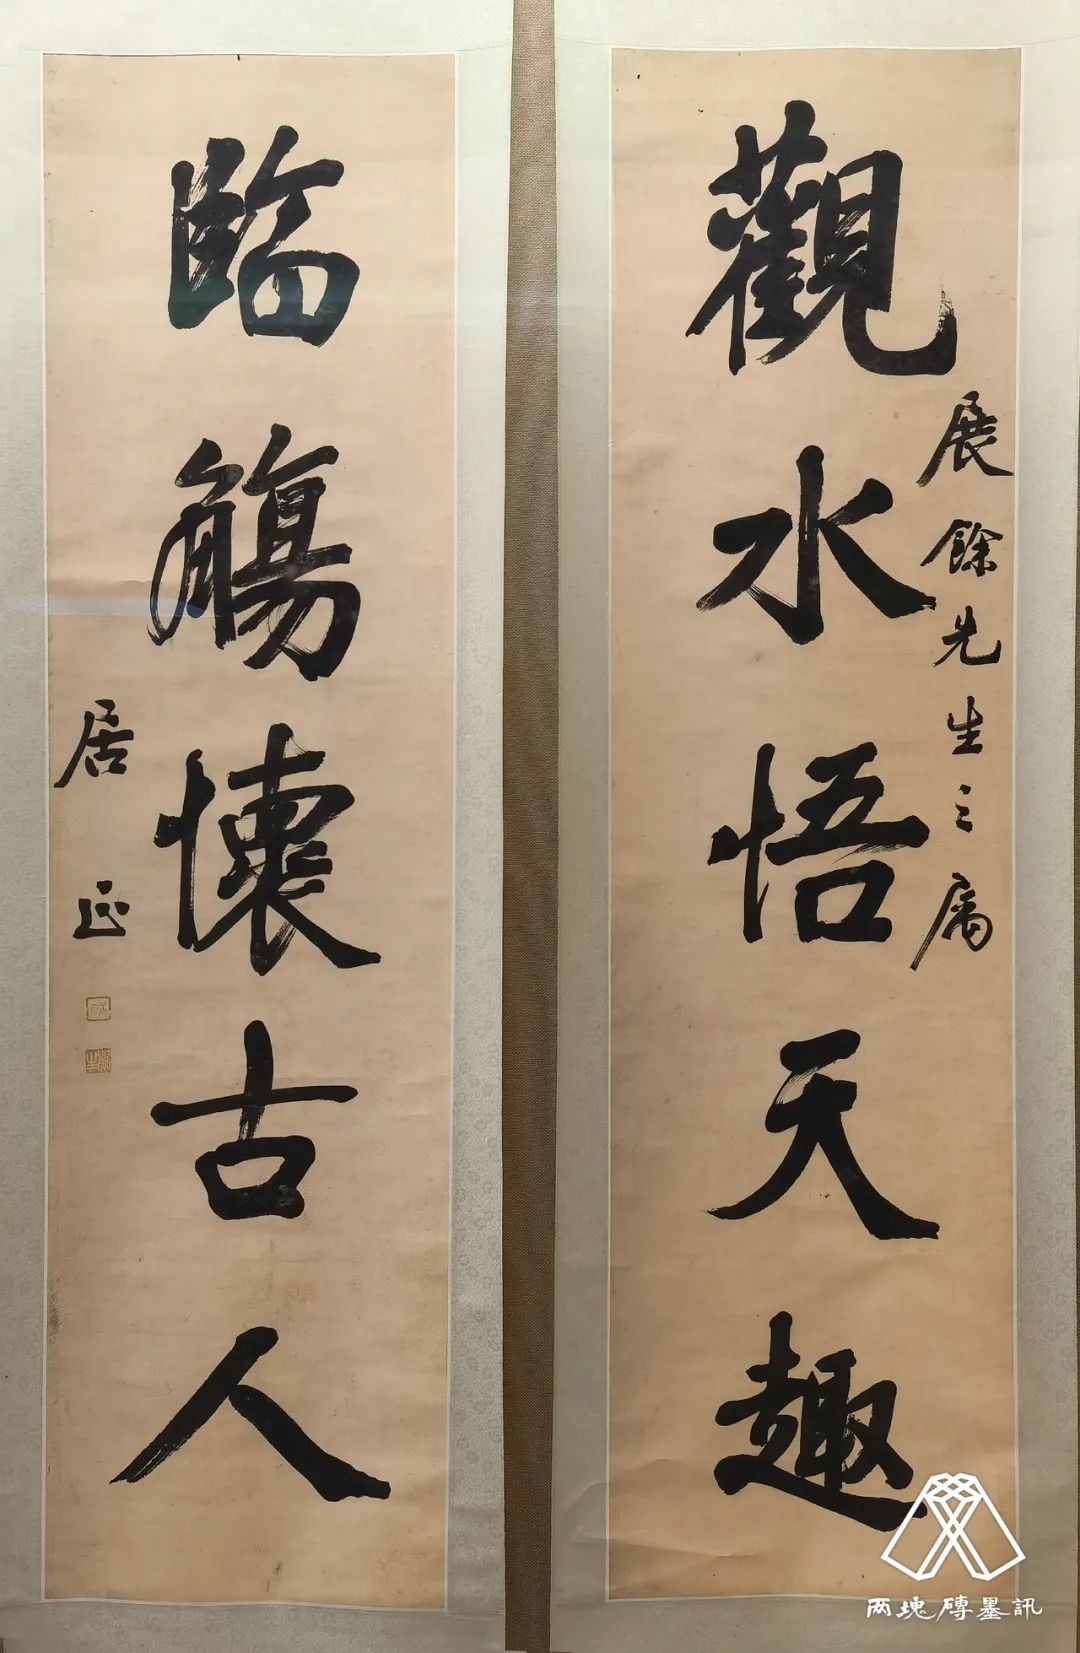 觀水悟天趣
展餘先生之属
臨觴懷古人
居正
两塊磚墨訊